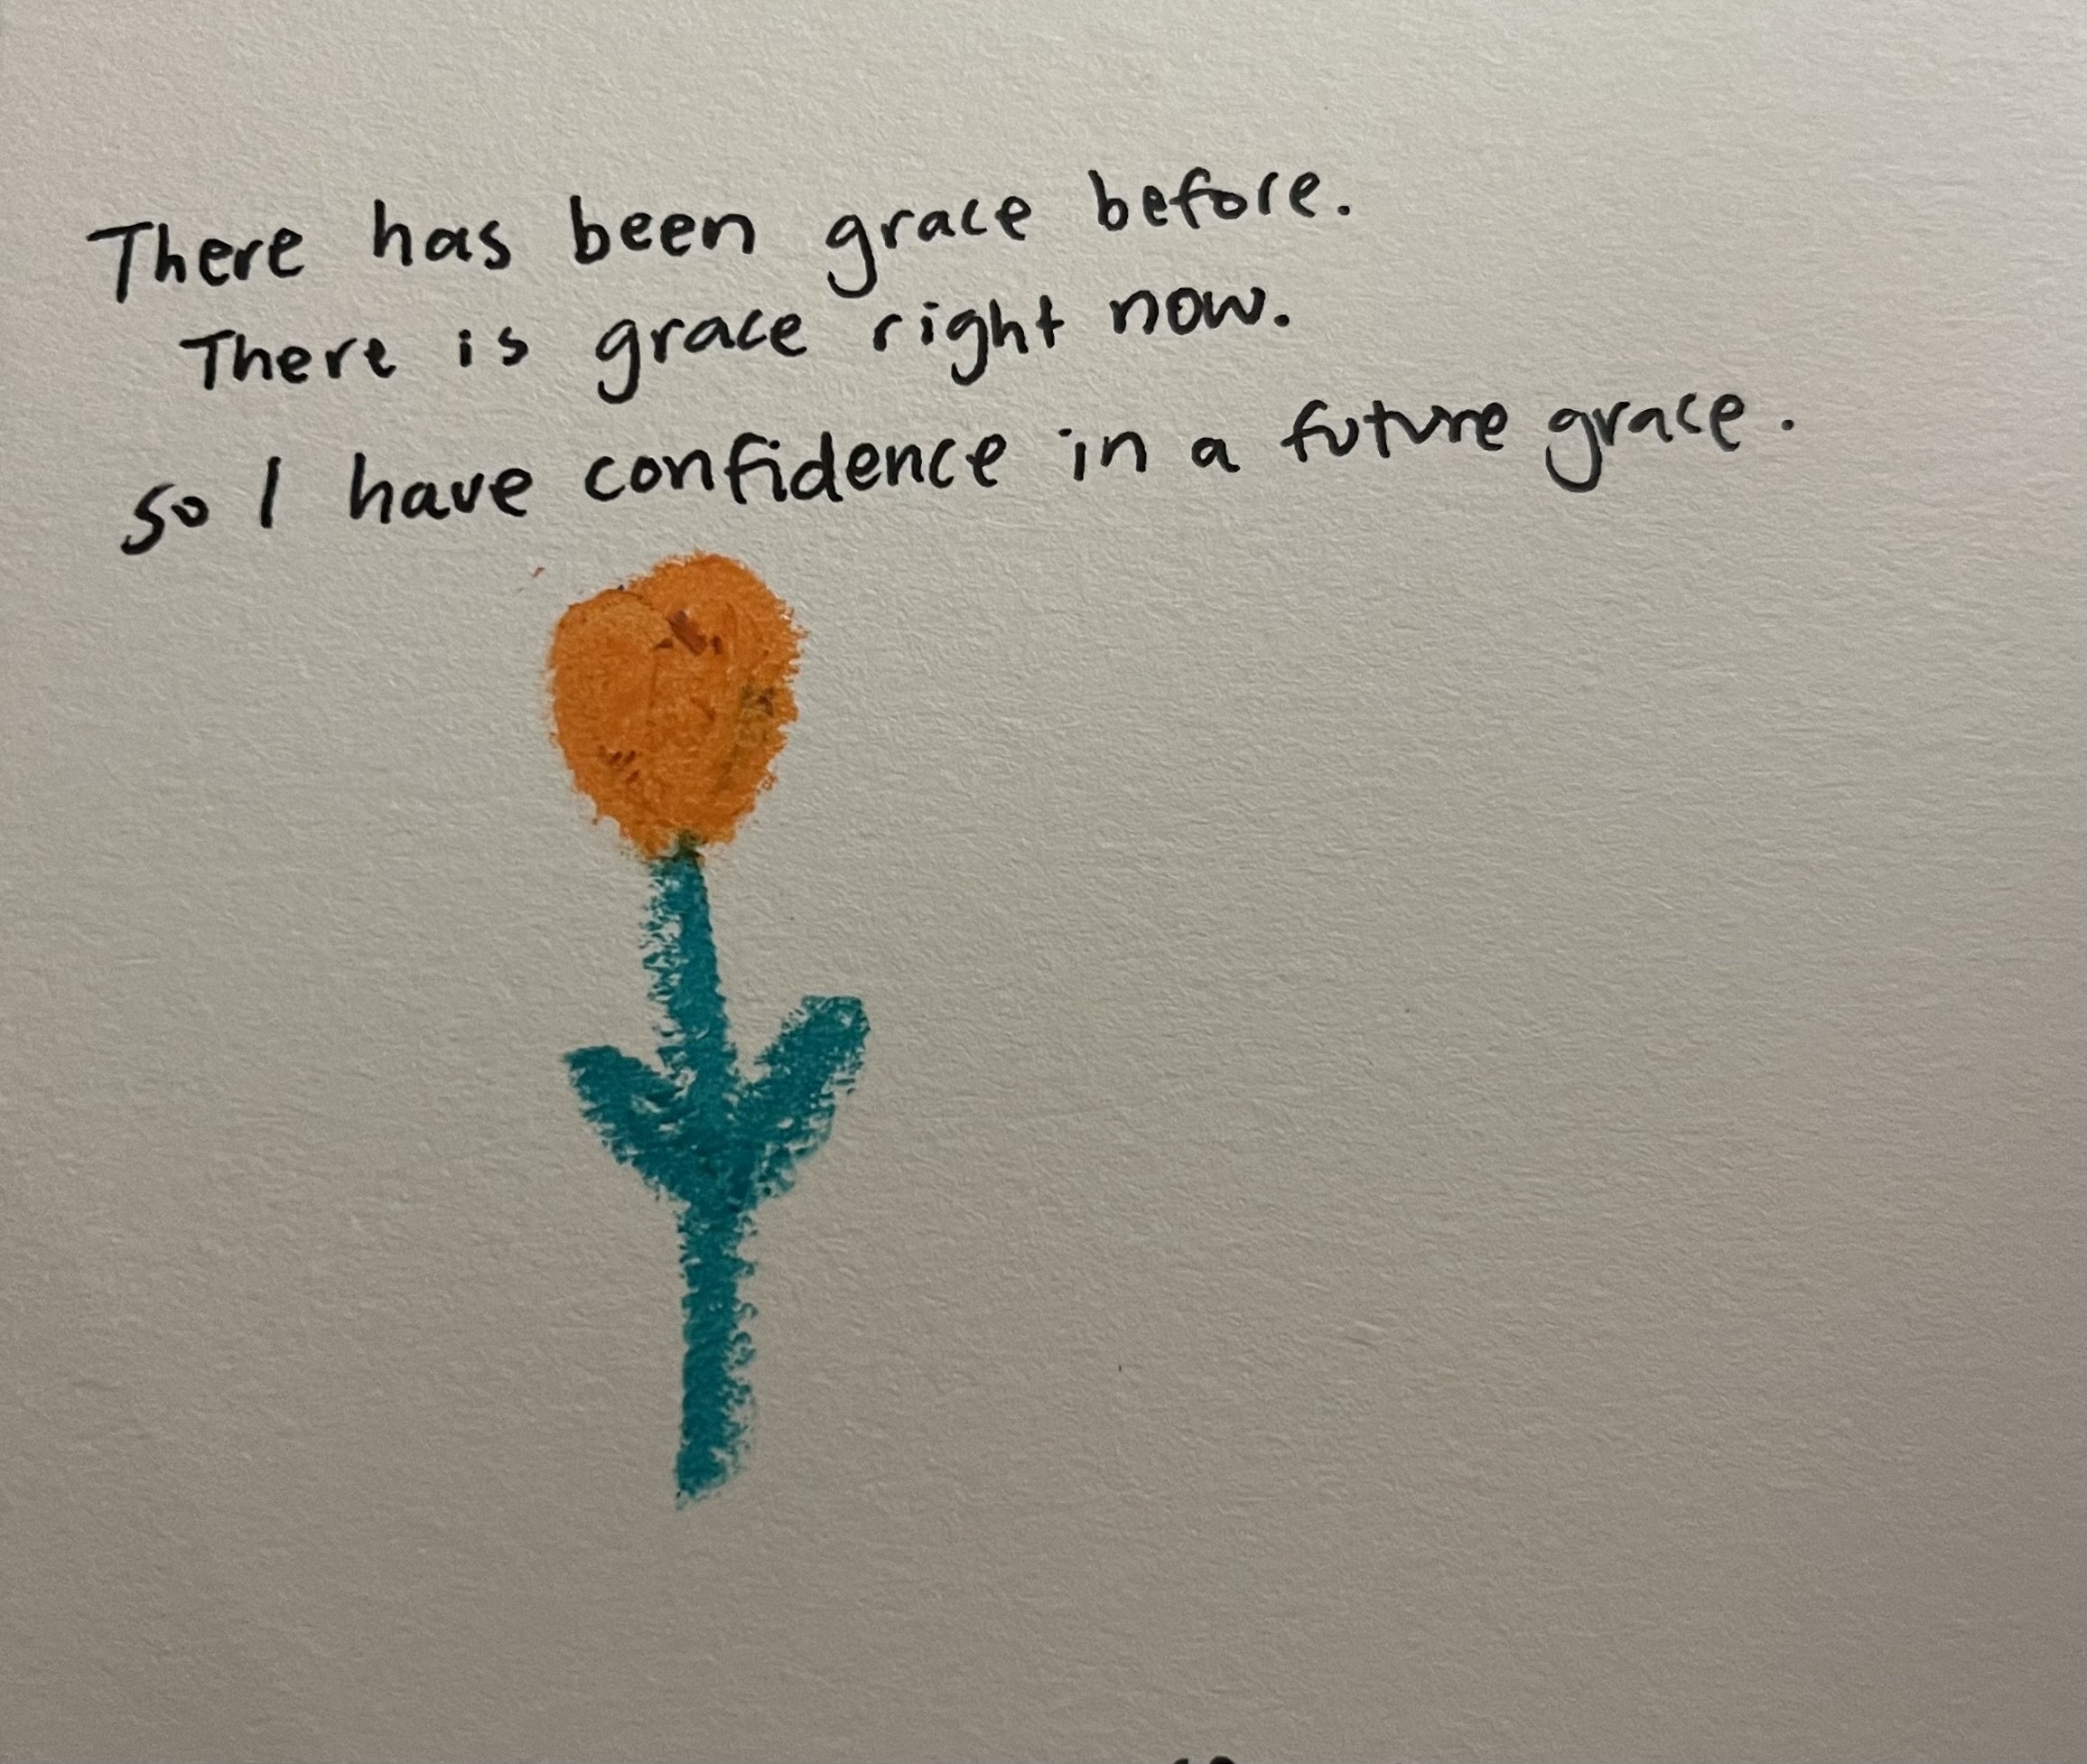 There has been grace before.
There is grace right now.
so I have confidence in a future grace.